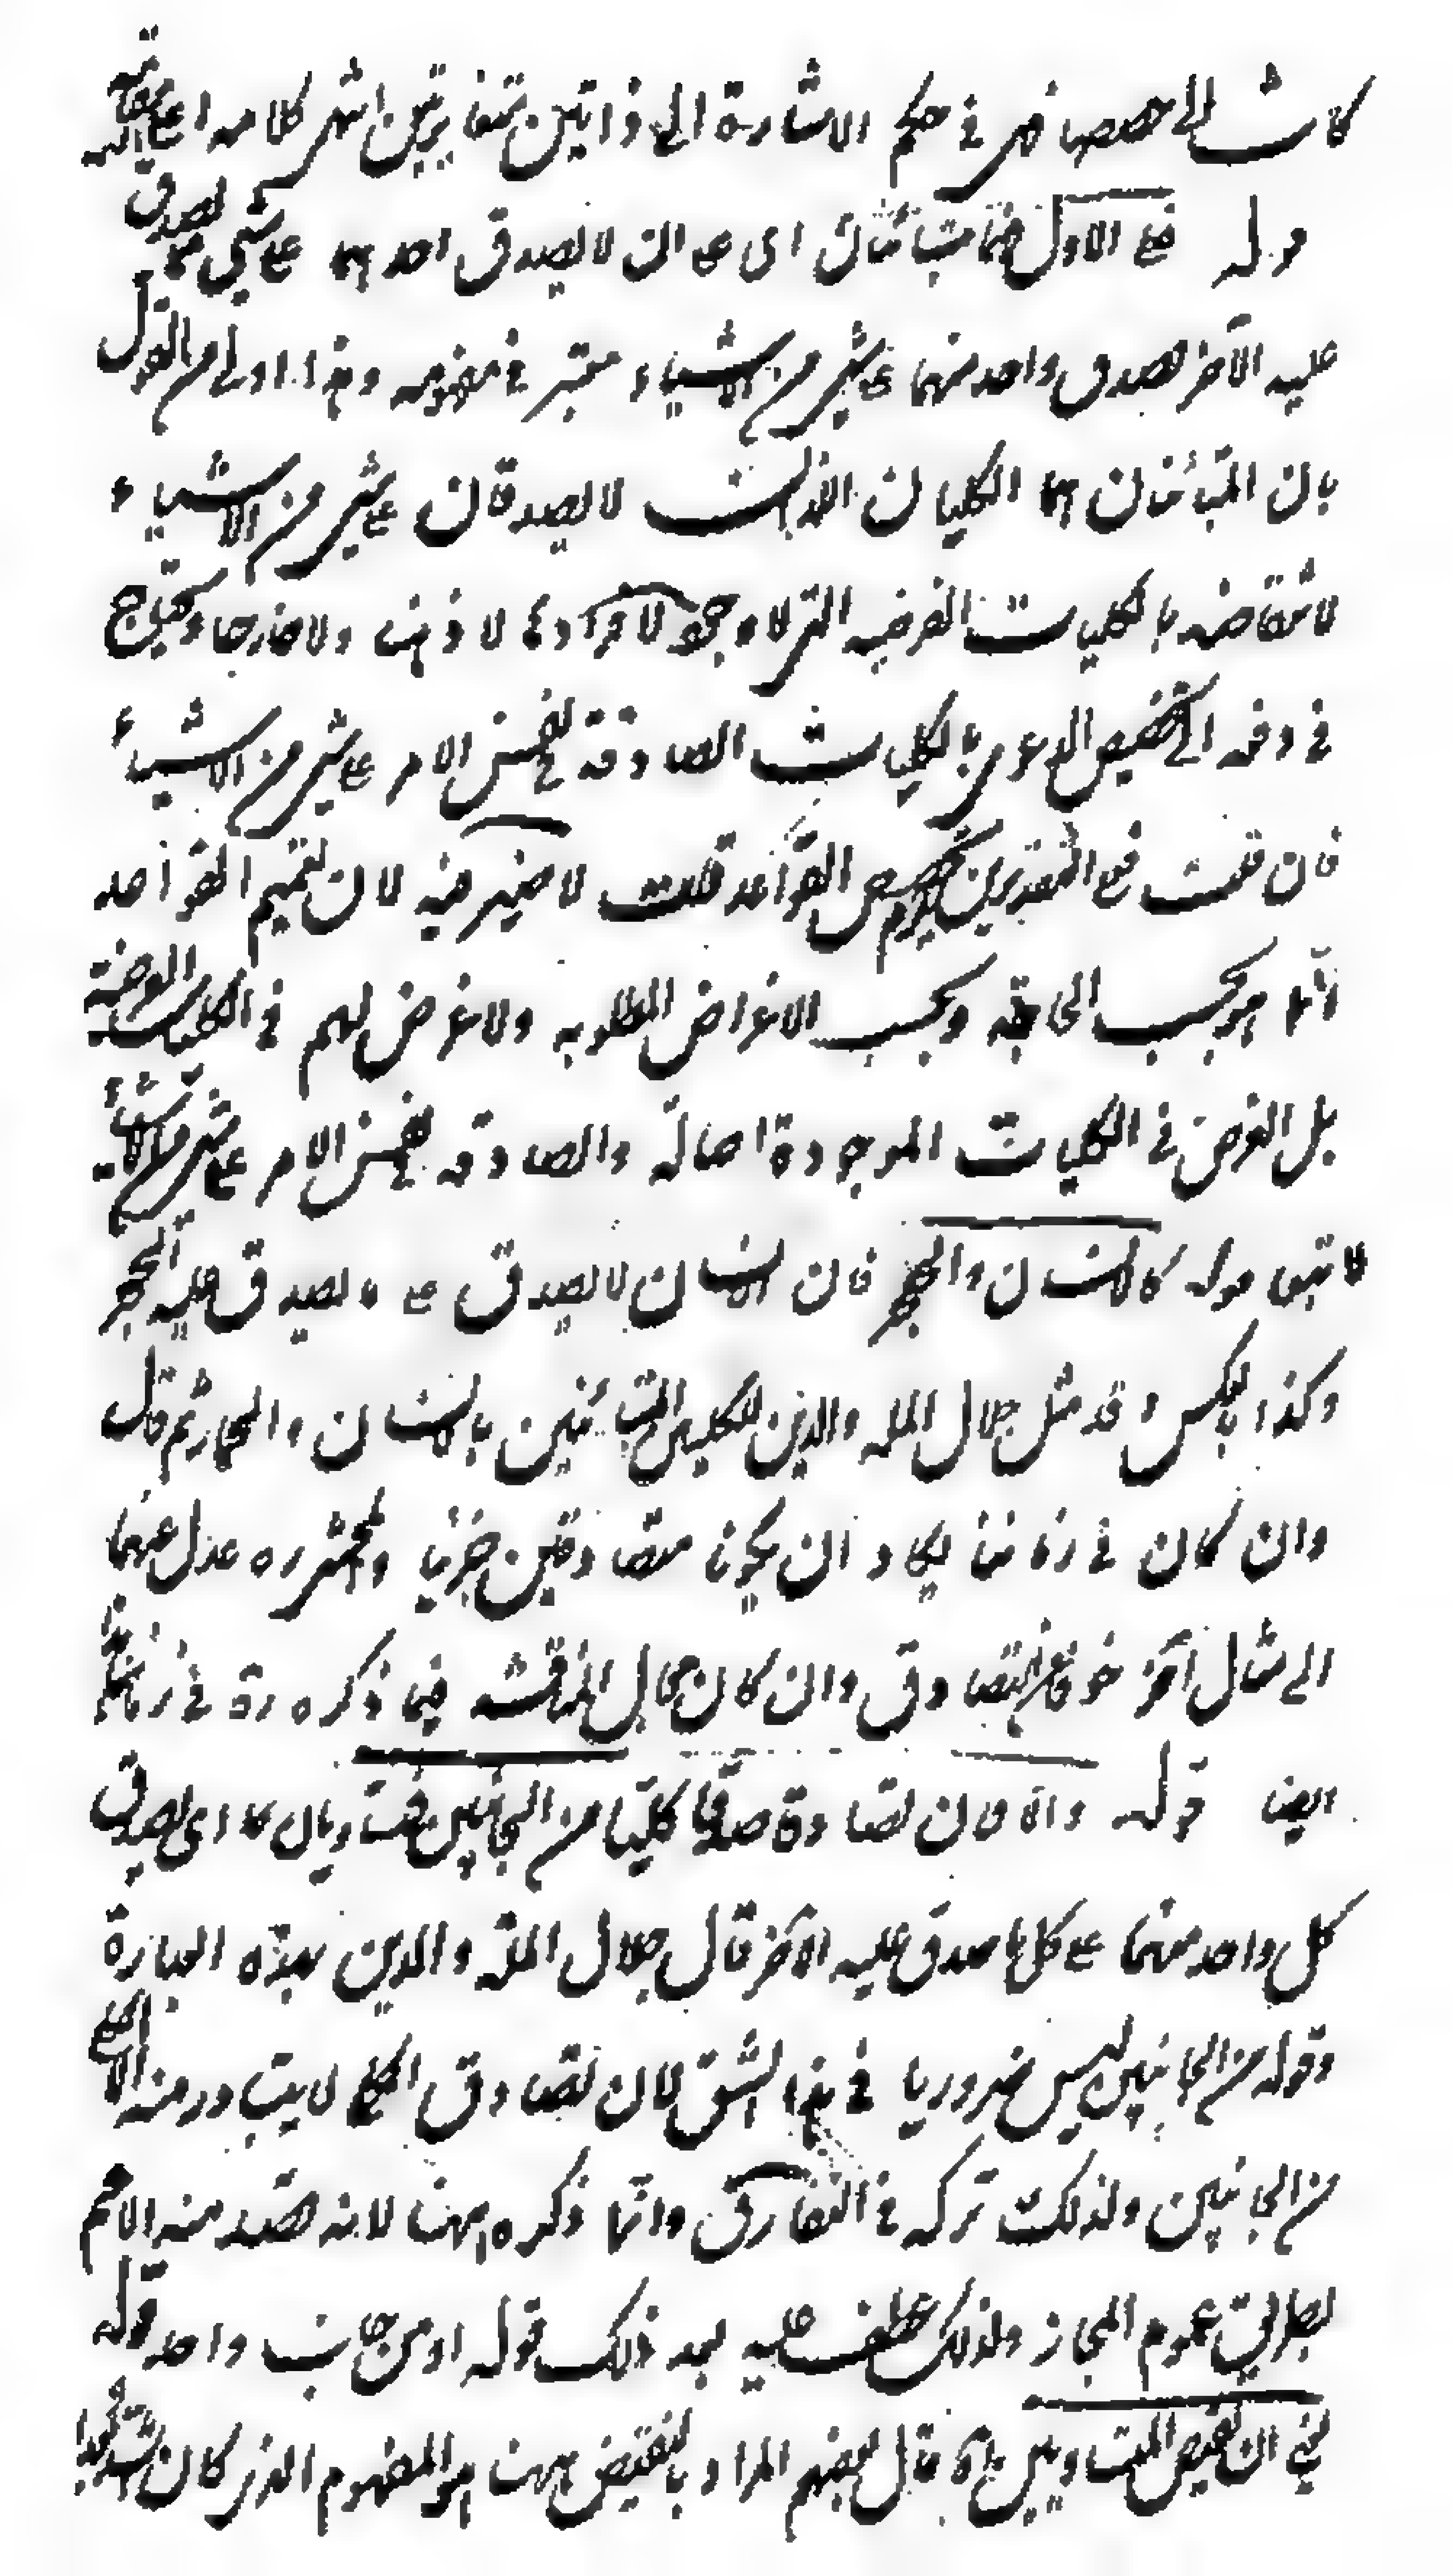 كانت الحصص في حكم الاشارة الى ذاتين متغايرتين انتهى كلامه اعلى الله مقامه
قوله فمع الاول فهما متباينان اى على ان لا يصدق احدهما على شىء مما يصدق
عليه الآخر فصدق واحد منهما على شىء من الاشياء معتبر في مفهومه وهذا اولى من القول
بان المتباينان هما الكليان اللذان لا يصدقان على شىء من الاشياء
لانتقاضه بالكليات الفرضيه التى لا وجود لافرادها لا ذهنا ولا خارجا ويحتاج
في دفعه الى تخصيص الدعوى بالكليات الصادقة في نفس الامر على شىء من الاشياء
فان قلت فمع التقديرين يلزم تخصيص القواعد قلت لا ضير فيه لان تعميم القواعد
انما هو بحسب الحاجة وبحسب الاغراض المطلوبه ولا غرض لهم في الكليات الفرضية
بل الغرض في الكليات الموجودة اصالة والصادقه في نفس الامر على شىء من الاشياء
كما سبق قوله كالانسان والحجر فان الانسان لا يصدق على ما يصدق عليه الحجر
وكذا بالعكس وقد مثل جلال المله والدين للكليين المتباينين بالانسان والحمار ثم قال
وان كان في زماننا يكاد ان يكونا متصادقين جزئيا والمحشى ره عدل عنهما
الى مثال آخر خوفا عن التصادق وان كان مجال المناقشة فيما ذكره ره في زماننا
ايضا قوله واما ان تصادقا صدقا كليا من الجانبين فمتساويان اى يصدق
كل واحد منهما على كل ما صدق عليه الآخر قال جلال المله والدين بهذه العبارة
وقوله من الجانبين ليس ضروريا في هذا الشق لان تصادق الكلى لا يتبادر منه الا الكلى
من الجانبين ولذلك تركه في التفارق وانما ذكره ههنا لانه قصد منه الاعم
بطريق عموم المجاز ولذلك عطف عليه بعد ذلك قوله او من جانب واحد قوله
يعني ان نقيض المتساويين قال بعضهم المراد بالنقيض ههنا هو المفهوم الذى كان